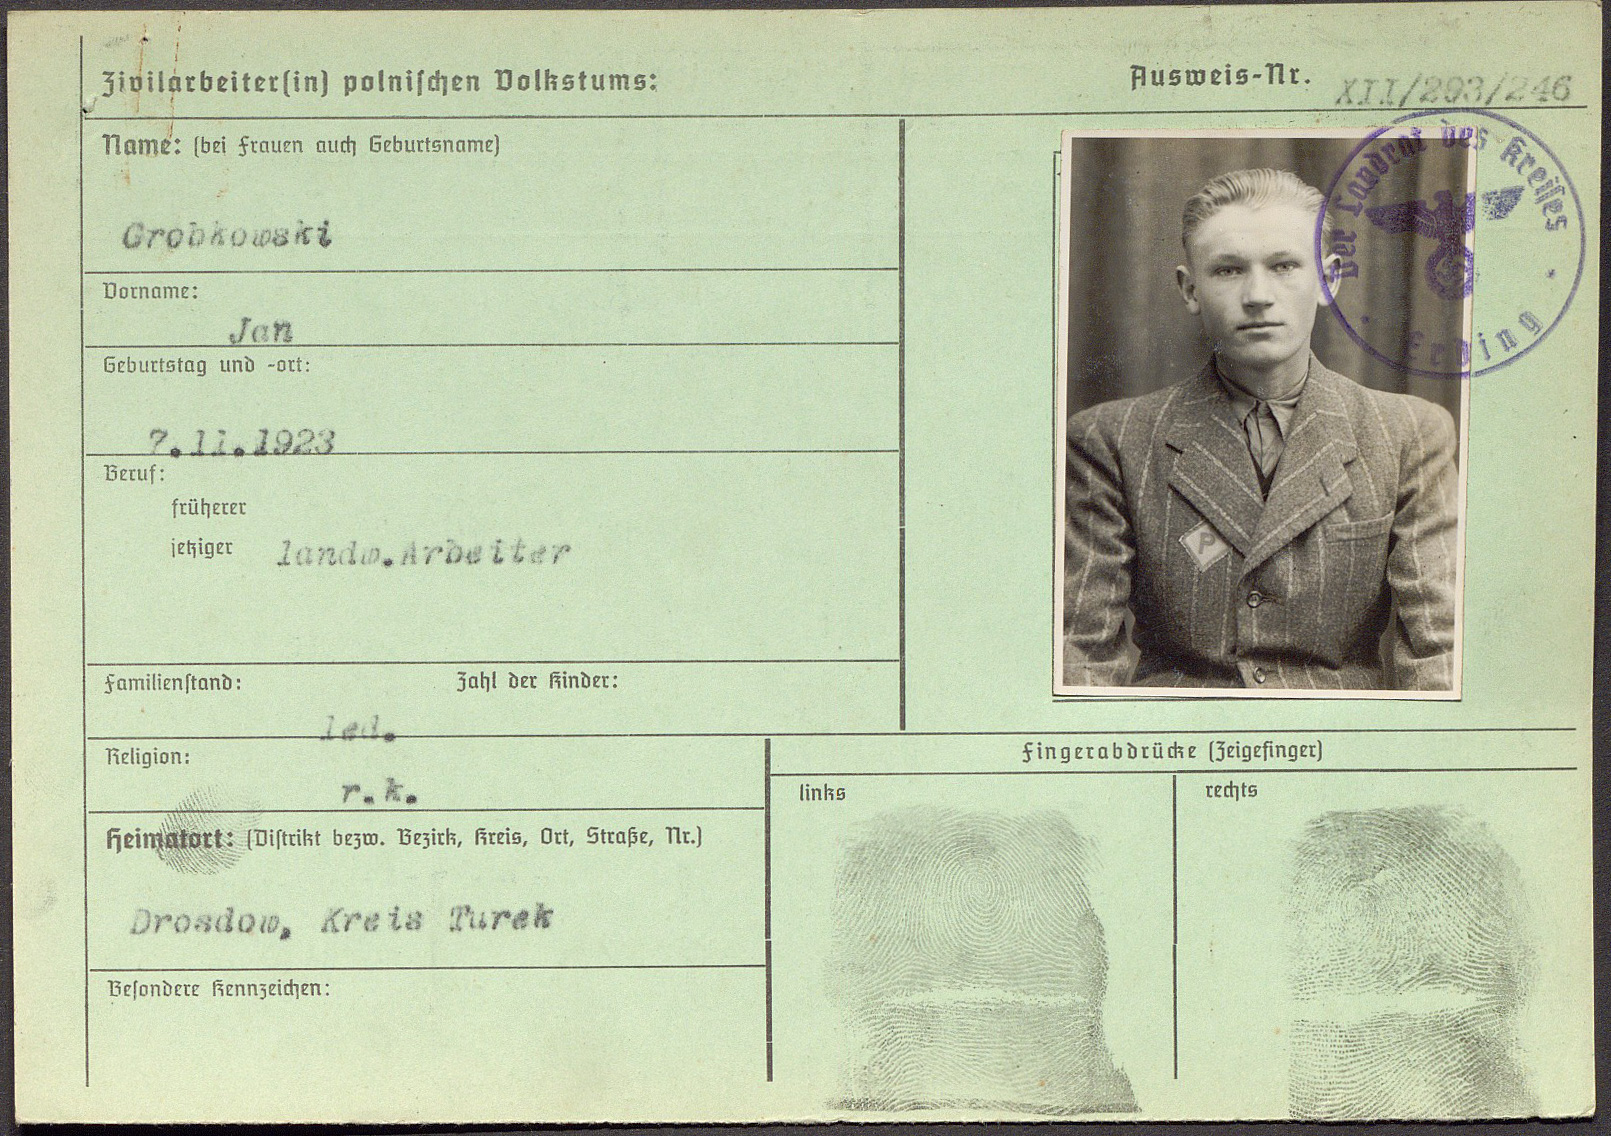 Zivilarbeiter(in) polnischen Volkstums:
Ausweis-Nr. XII/293/246
Name: (bei Frauen auch Geburtsname)
Grobkowski
Vorname:
Jan
Geburtstag und -ort:
7.11.1923
Beruf:
früherer
jetziger landw.Arbeiter
Familienstand: Zahl der Kinder:
led.
Religion:
r.k.
Heimatort: (Distrikt bezw. Bezirk, Kreis, Ort, Straße, Nr.)
Drosdow, Kreis Turek
Besondere Kennzeichen:
P
Der Landrat des Kreises
Erding
Fingerabdrücke (Zeigefinger)
links
rechts